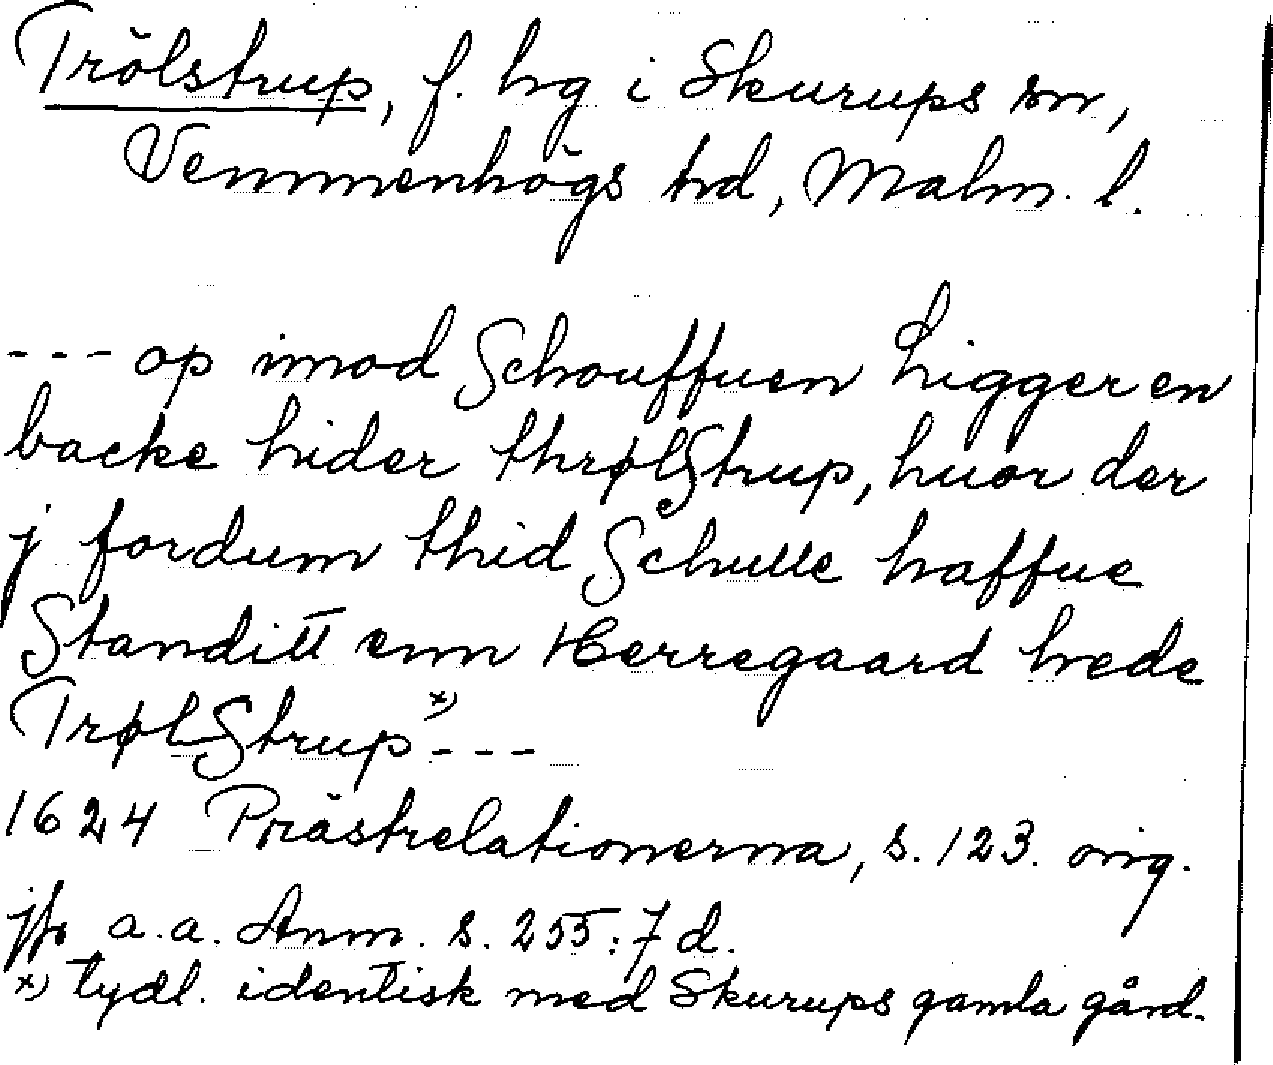 Trölstrup, f. hg i Skurups sn,
Vemmenhögs hd, Malm. l.
--- op imod Schouffuen Ligger en
backe hider thrølStrup, huor der
j fordum thid Schulle haffue
Standitt enn Herregaard hede
TrølStrup x) ---
1624 Prästrelationerna, s. 123. orig.
jfr a.a. Anm. s. 255:7 d.
x) tydl. identisk med Skurups gamla gård.